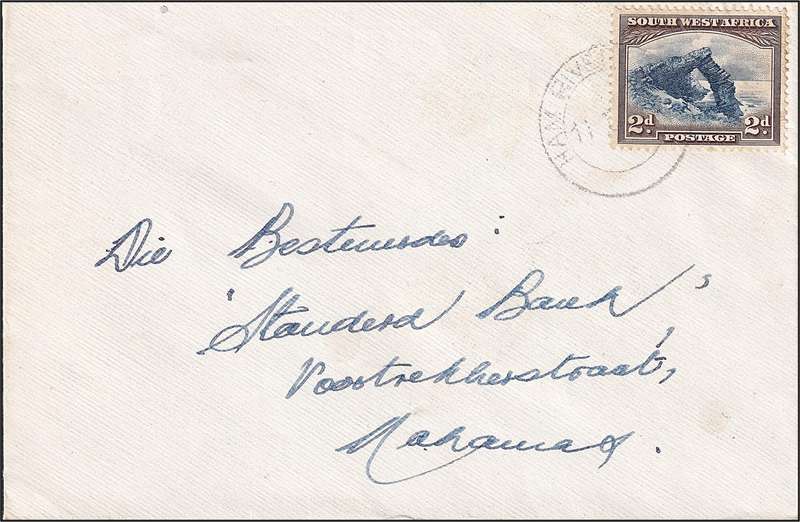 SOUTH WEST AFRICA
2d. 2d.
POSTAGE
HAM RIV
11
Die Bestuurder
'Standerd Bank'
Voortrekkerstraat,